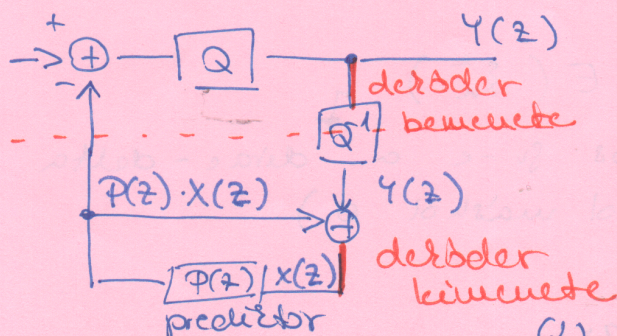 +
+ Q Y(z)
-
dekóder
bemenete
Q⁻¹
P(z)·X(z) Y(z)
+
dekóder
kimenete
P(z) X(z)
prediktor